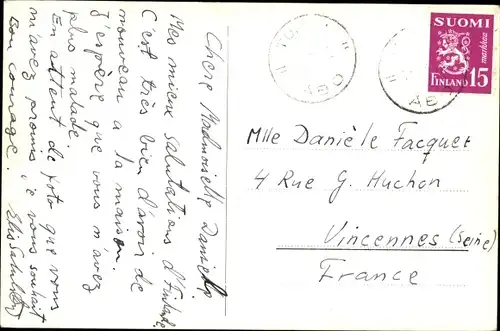 Chère Madmoiselle Danielle
Mes mieux salutations d'Finlande
C'est très bien d'avoir de
nouveau a la maison.
J'espère que vous n'avez
plus malade.
En attent de foto que vous
m'avez promis, je vous souhait
bon courage.
SUOMI
markkaa
FINLAND 15
ÅBO
ÅBO
Mlle Danièle Facquet
4 Rue G. Huchon
Vincennes (Seine)
France